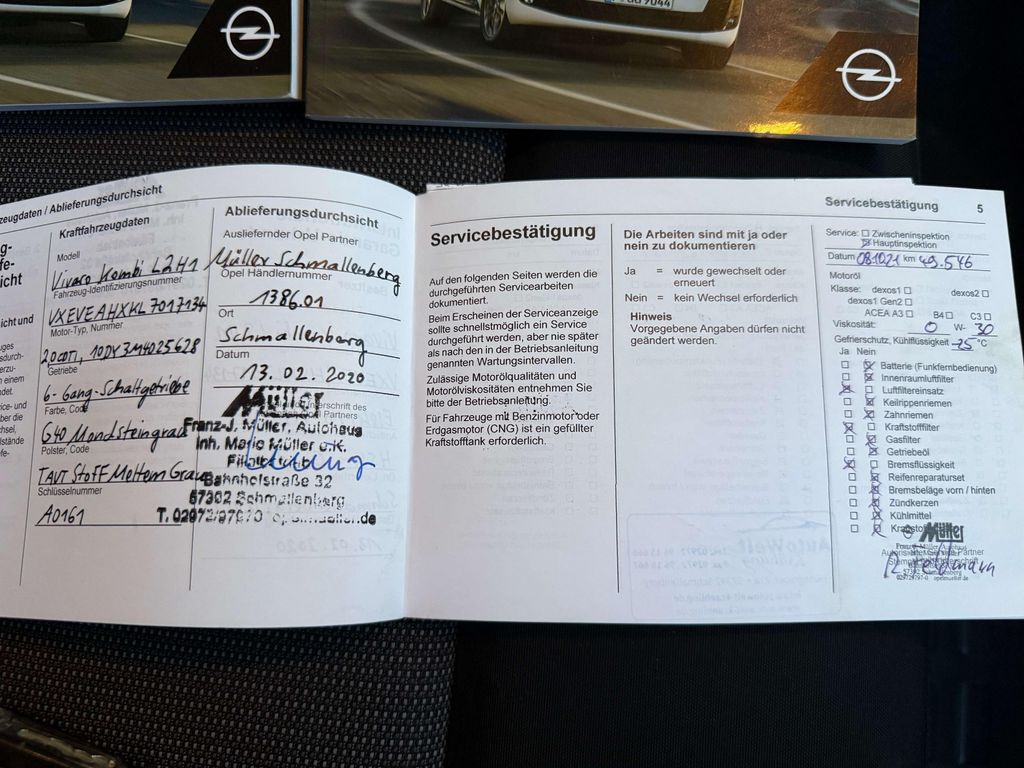 zeugdaten / Ablieferungsdurchsicht
Kraftfahrzeugdaten
Modell
Vivaro Kombi L2H1
Fahrzeug-Identifizierungsnummer
VXEVEAHXKL7017134
Motor-Typ, Nummer
2.0CDTI, 10DY3M4025628
Getriebe
6-Gang-Schaltgetriebe
Farbe, Code
G40 Mondsteingrau
Polster, Code
TAVT Stoff Meltem Grau
Schlüsselnummer
A0161
Ablieferungsdurchsicht
Ausliefernder Opel Partner
Müller Schmallenberg
Opel Händlernummer
1386.01
Ort
Schmallenberg
Datum
13.02.2020
Müller
Franz-J. Müller, Autohaus
Inh. Mario Müller e.K.
Bahnhofstraße 32
57392 Schmallenberg
Servicebestätigung 5
Servicebestätigung
Auf den folgenden Seiten werden die
durchgeführten Servicearbeiten
dokumentiert.
Beim Erscheinen der Serviceanzeige
sollte schnellstmöglich ein Service
durchgeführt werden, aber nie später
als nach den in der Betriebsanleitung
genannten Wartungsintervallen.
Zulässige Motorölqualitäten und
Motorölviskositäten entnehmen Sie
bitte der Betriebsanleitung.
Für Fahrzeuge mit Benzinmotor oder
Erdgasmotor (CNG) ist ein gefüllter
Kraftstofftank erforderlich.
Die Arbeiten sind mit ja oder
nein zu dokumentieren
Ja = wurde gewechselt oder
erneuert
Nein = kein Wechsel erforderlich
Hinweis
Vorgegebene Angaben dürfen nicht
geändert werden.
Service: ☐ Zwischeninspektion
☒ Hauptinspektion
Datum 08.10.21 km 49.546
Motoröl
Klasse: dexos1 ☐ dexos2 ☐
dexos1 Gen2 ☐
ACEA A3 ☐ B4 ☐ C3 ☐
Viskosität: 0 W- 30
Gefrierschutz, Kühlflüssigkeit -25 °C
Ja Nein
☐ ☒ Batterie (Funkfernbedienung)
☐ ☒ Innenraumluftfilter
☒ ☐ Luftfiltereinsatz
☐ ☒ Keilrippenriemen
☐ ☒ Zahnriemen
☒ ☐ Kraftstofffilter
☐ ☒ Gasfilter
☐ ☒ Getriebeöl
☒ ☐ Bremsflüssigkeit
☐ ☒ Reifenreparaturset
☐ ☒ Bremsbeläge vorn / hinten
☐ ☒ Zündkerzen
☐ ☒ Kühlmittel
Müller